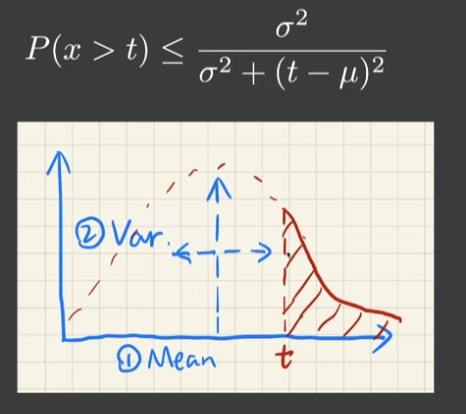 P(x > t) ≤ σ² / (σ² + (t − μ)²)
② Var.
① Mean
t